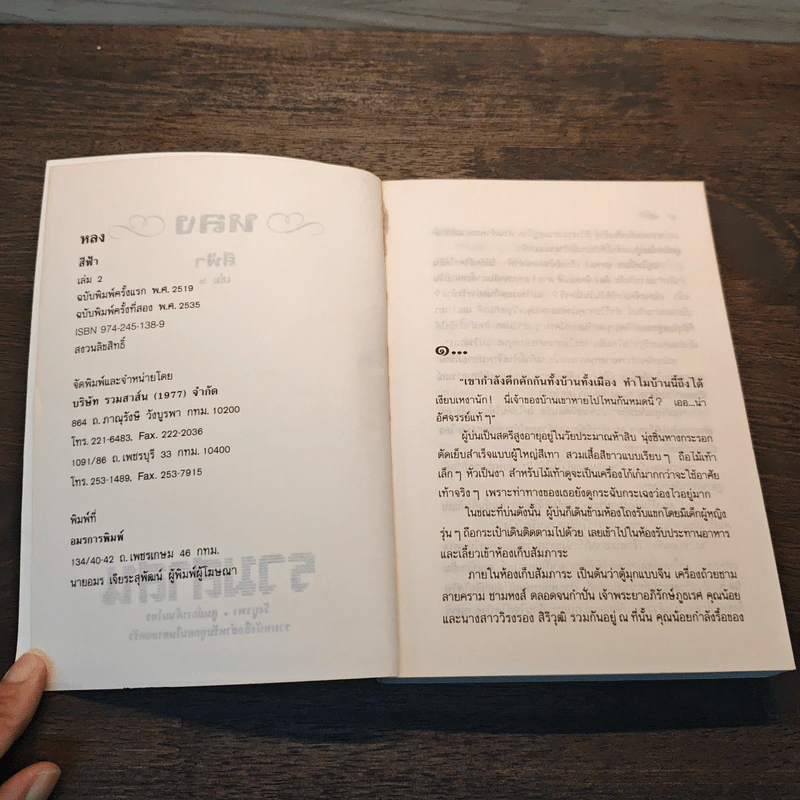 หลง
สีฟ้า
เล่ม 2
ฉบับพิมพ์ครั้งแรก พ.ศ. 2519
ฉบับพิมพ์ครั้งที่สอง พ.ศ. 2535
ISBN 974-245-138-9
สงวนลิขสิทธิ์
จัดพิมพ์และจำหน่ายโดย
บริษัท รวมสาส์น (1977) จำกัด
864 ถ. ภาณุรังษี วังบูรพา กทม. 10200
โทร. 221-6483. Fax. 222-2036
1091/86 ถ. เพชรบุรี 33 กทม. 10400
โทร. 253-1489. Fax. 253-7915
พิมพ์ที่
อมรการพิมพ์
134/40-42 ถ. เพชรเกษม 46 กทม.
นายอมร เจียระสุพัฒน์ ผู้พิมพ์ผู้โฆษณา
๑...
"เขากำลังคึกคักกันทั้งบ้านทั้งเมือง ทำไมบ้านนี้ถึงได้
เงียบเหงานัก! นี่เจ้าของบ้านเขาหายไปไหนกันหมดนี่? เออ...น่า
อัศจรรย์แท้ ๆ"
ผู้บ่นเป็นสตรีสูงอายุอยู่ในวัยประมาณห้าสิบ นุ่งซิ่นหางกระรอก
ตัดเย็บสำเร็จแบบผู้ใหญ่สีเทา สวมเสื้อสีขาวแบบเรียบ ๆ ถือไม้เท้า
เล็ก ๆ หัวเป็นงา สำหรับไม้เท้าดูจะเป็นเครื่องโก้เก๋มากกว่าจะใช้อาศัย
เท้าจริง ๆ เพราะท่าทางของเธอยังดูกระฉับกระเฉงว่องไวอยู่มาก
ในขณะที่บ่นดังนั้น ผู้บ่นก็เดินข้ามห้องโถงรับแขกโดยมีเด็กผู้หญิง
รุ่น ๆ ถือกระเป๋าเดินติดตามไปด้วย เลยเข้าไปในห้องรับประทานอาหาร
และเลี้ยวเข้าห้องเก็บสัมภาระ
ภายในห้องเก็บสัมภาระ เป็นต้นว่าตู้มุกแบบจีน เครื่องถ้วยชาม
ลายคราม ชามหงส์ ตลอดจนกำปั่น เจ้าพระยาอภิรักษ์ภูธเรศ คุณน้อย
และนางสาววิรงรอง สิริวุฒิ รวมกันอยู่ ณ ที่นั้น คุณน้อยกำลังรื้อของ